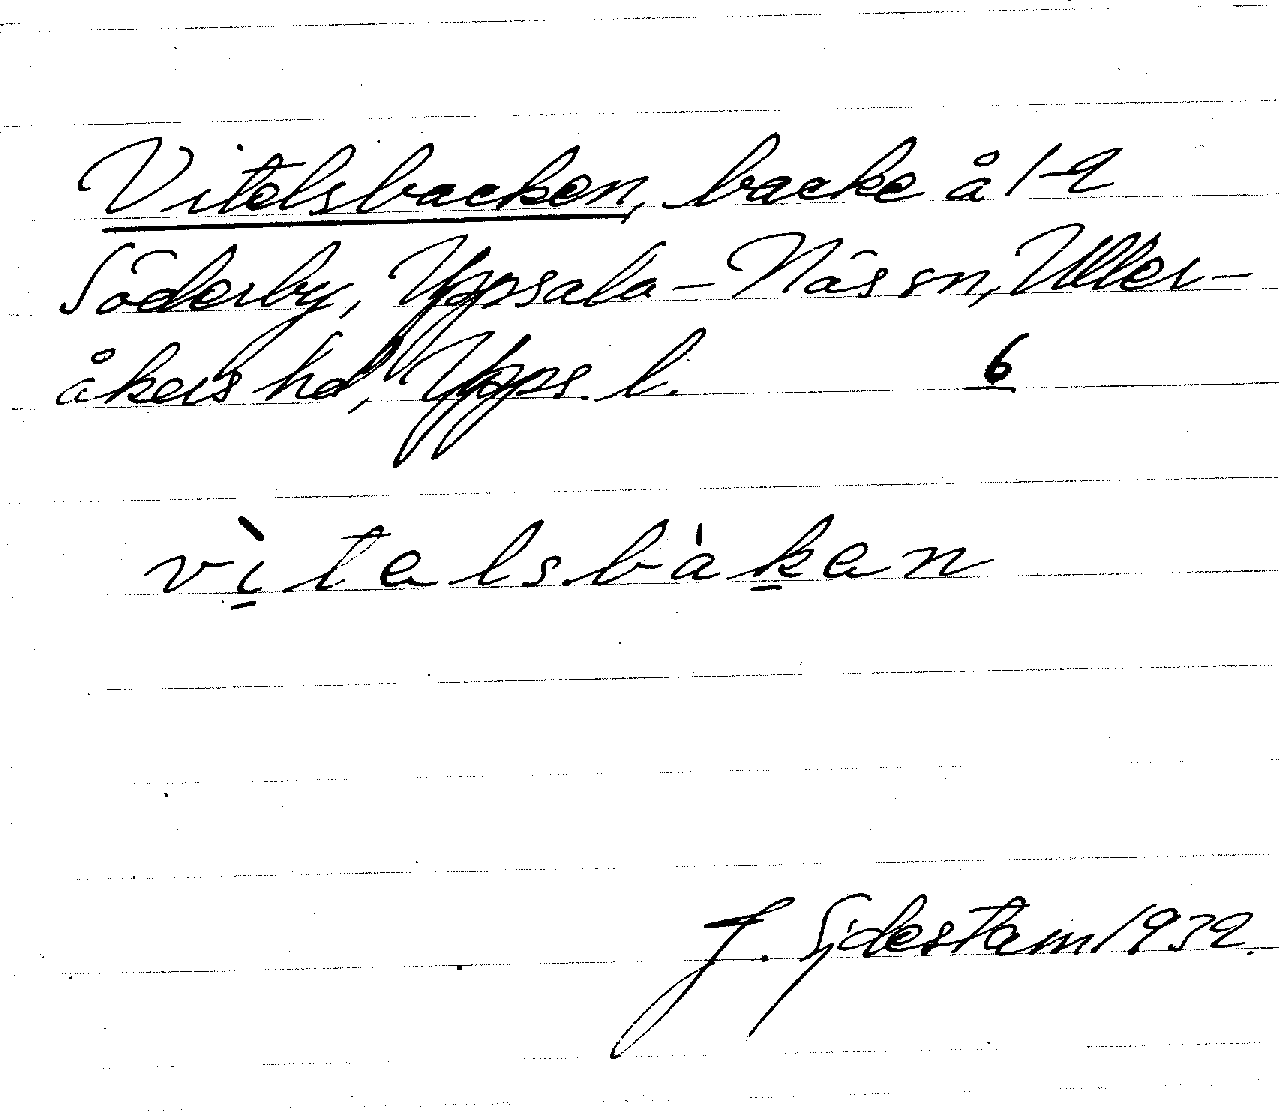 Vitelsbacken, backe å 1-2
Söderby, Uppsala-Näs sn, Uller-
åkers hd, Upps. l. 6
vìtelsbàken
J. Sjdestam 1932.